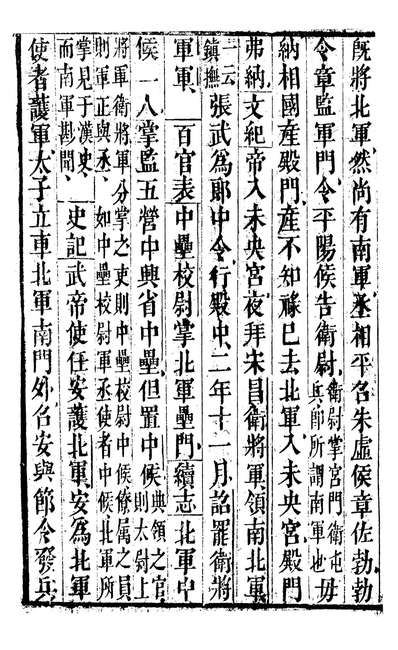 既將北軍然尚有南軍丞相平召朱虛侯章佐勃勃
令章監軍門令平陽侯告衛尉衛尉掌宮門衛屯兵即所謂南軍也毋
納相國產殿門產不知祿已去北軍入未央宮殿門
弗納文紀帝入未央宮夜拜宋昌衛將軍領南北軍
一云鎮撫張武爲郎中令行殿中二年十一月詔罷衛將
軍軍　百官表中壘校尉掌北軍壘門續志北軍中
候一人掌監五營中興省中壘但置中候典領之官則太尉上
將軍衛將軍分掌之吏則中壘校尉中候僚属之員
則軍正與丞如中壘校尉軍丞使者中候北軍所
掌見于漢史而南軍尠聞　史記武帝使任安護北軍安爲北軍
使者護軍太子立車北軍南門外召安與節令發兵